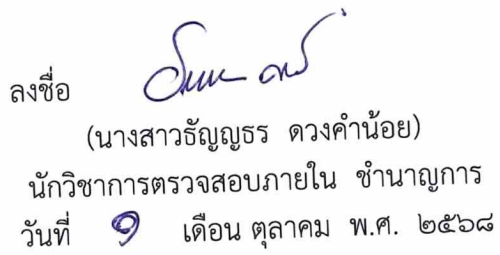 ลงชื่อ
(นางสาวธัญญธร ดวงคำน้อย)
นักวิชาการตรวจสอบภายใน ชำนาญการ
วันที่ ๑ เดือน ตุลาคม พ.ศ. ๒๕๖๘